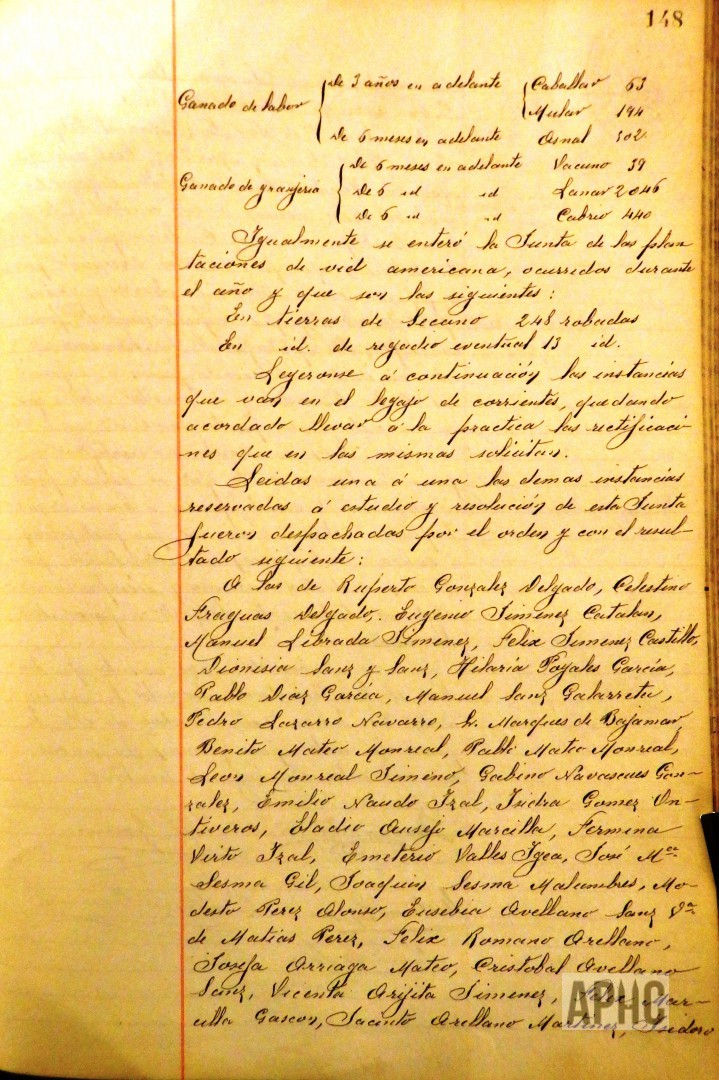 148
Ganado de labor { De 3 años en adelante { Caballar 63
Mular 194
De 6 meses en adelante Asnal 302
Ganado de granjeria { De 6 meses en adelante Vacuno 39
De 6 id id Lanar 2046
De 6 id id Cabrio 440
Igualmente se enteró la Junta de las plan
taciones de vid americana, ocurridos durante
el año y que son las siguientes:
En tierras de Secano 248 robadas
En id. de regadio eventual 13 id.
Leyeronse á continuación las instancias
que van en el legajo de corrientes, quedando
acordado llevar á la practica las rectificaci-
nes que en las mismas solicitan.
Leidas una á una las demas instancias
reservadas á estudio y resolución de esta Junta
fueron despachadas por el orden y con el resul-
tado siguiente:
A las de Ruperto Gonzalez Delgado, Celestino
Fraguas Delgado, Eugenio Jimenez Catalan,
Manuel Librada Jimenez, Felix Jimenez Castillo,
Dionisia Sanz y Sanz, Hilaria Poyales Garcia,
Pablo Diaz Garcia, Manuel Sanz Galarreta,
Pedro Lazarro Navarro, Sr. Marques de Bajamar
Benito Mateo Monreal, Pablo Mateo Monreal,
Leon Monreal Jimeno, Gabino Navascues Gon-
zalez, Emilio Naudo Izal, Isidra Gomez On-
tiveros, Eladio Ausejo Marcilla, Fermina
Virto Izal, Emeterio Valles Igea, José Mª
Sesma Gil, Joaquin Sesma Malumbres, Mo-
desto Perez Alonso, Eusebia Avellano Sanz Vª
de Matias Perez, Felix Romano Arellano,
Josefa Arriaga Mateo, Cristobal Avellano
Sanz, Vicenta Arijita Jimenez, Mar-
cilla Gascon, Jacinto Arellano Martinez, Isidoro
APHC